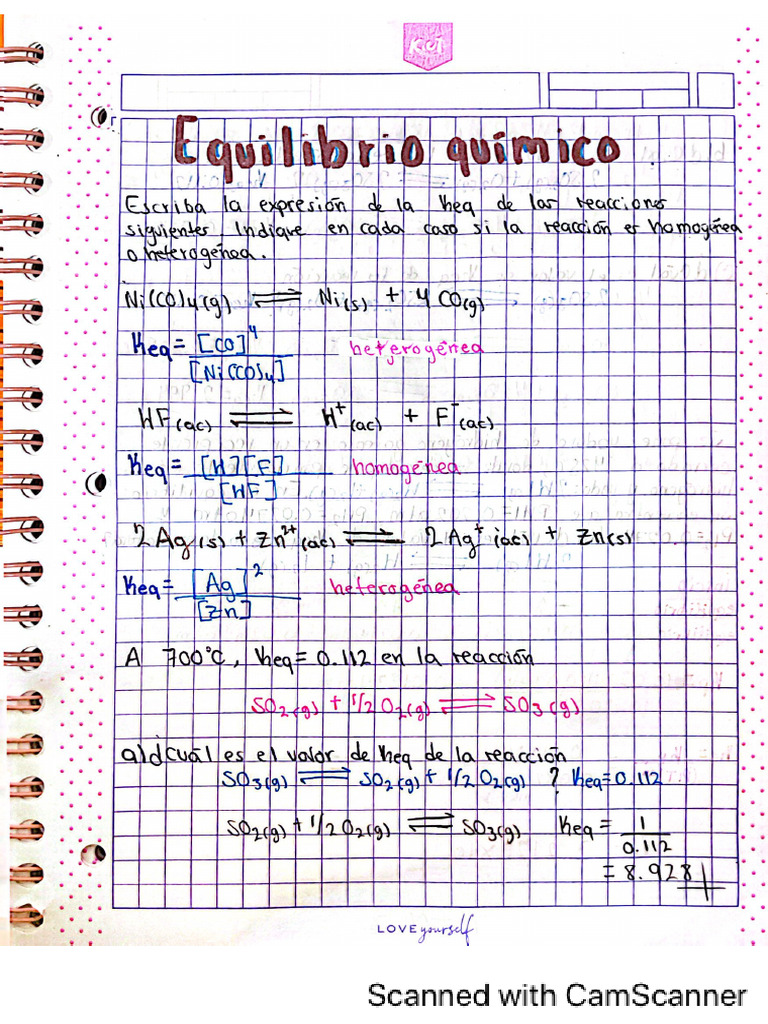 KeT
Equilibrio químico
Escriba la expresión de la Keq de las reacciones
siguientes Indique en cada caso si la reacción es homogénea
o heterogénea.
Ni(CO)4(g) ⇌ Ni(s) + 4 CO(g)
Keq = [CO]^4 / [Ni(CO)4] heterogénea
HF(ac) ⇌ H+(ac) + F-(ac)
Keq = [H][F] / [HF] homogénea
2Ag(s) + Zn2+(ac) ⇌ 2Ag+(ac) + Zn(s)
Keq = [Ag]^2 / [Zn] heterogénea
A 700°C, Keq = 0.112 en la reacción
SO2(g) + 1/2 O2(g) ⇌ SO3(g)
a) ¿Cuál es el valor de Keq de la reacción
SO3(g) ⇌ SO2(g) + 1/2 O2(g) ? Keq=0.112
SO2(g) + 1/2 O2(g) ⇌ SO3(g) Keq = 1 / 0.112
= 8.928
LOVE yourself
Scanned with CamScanner